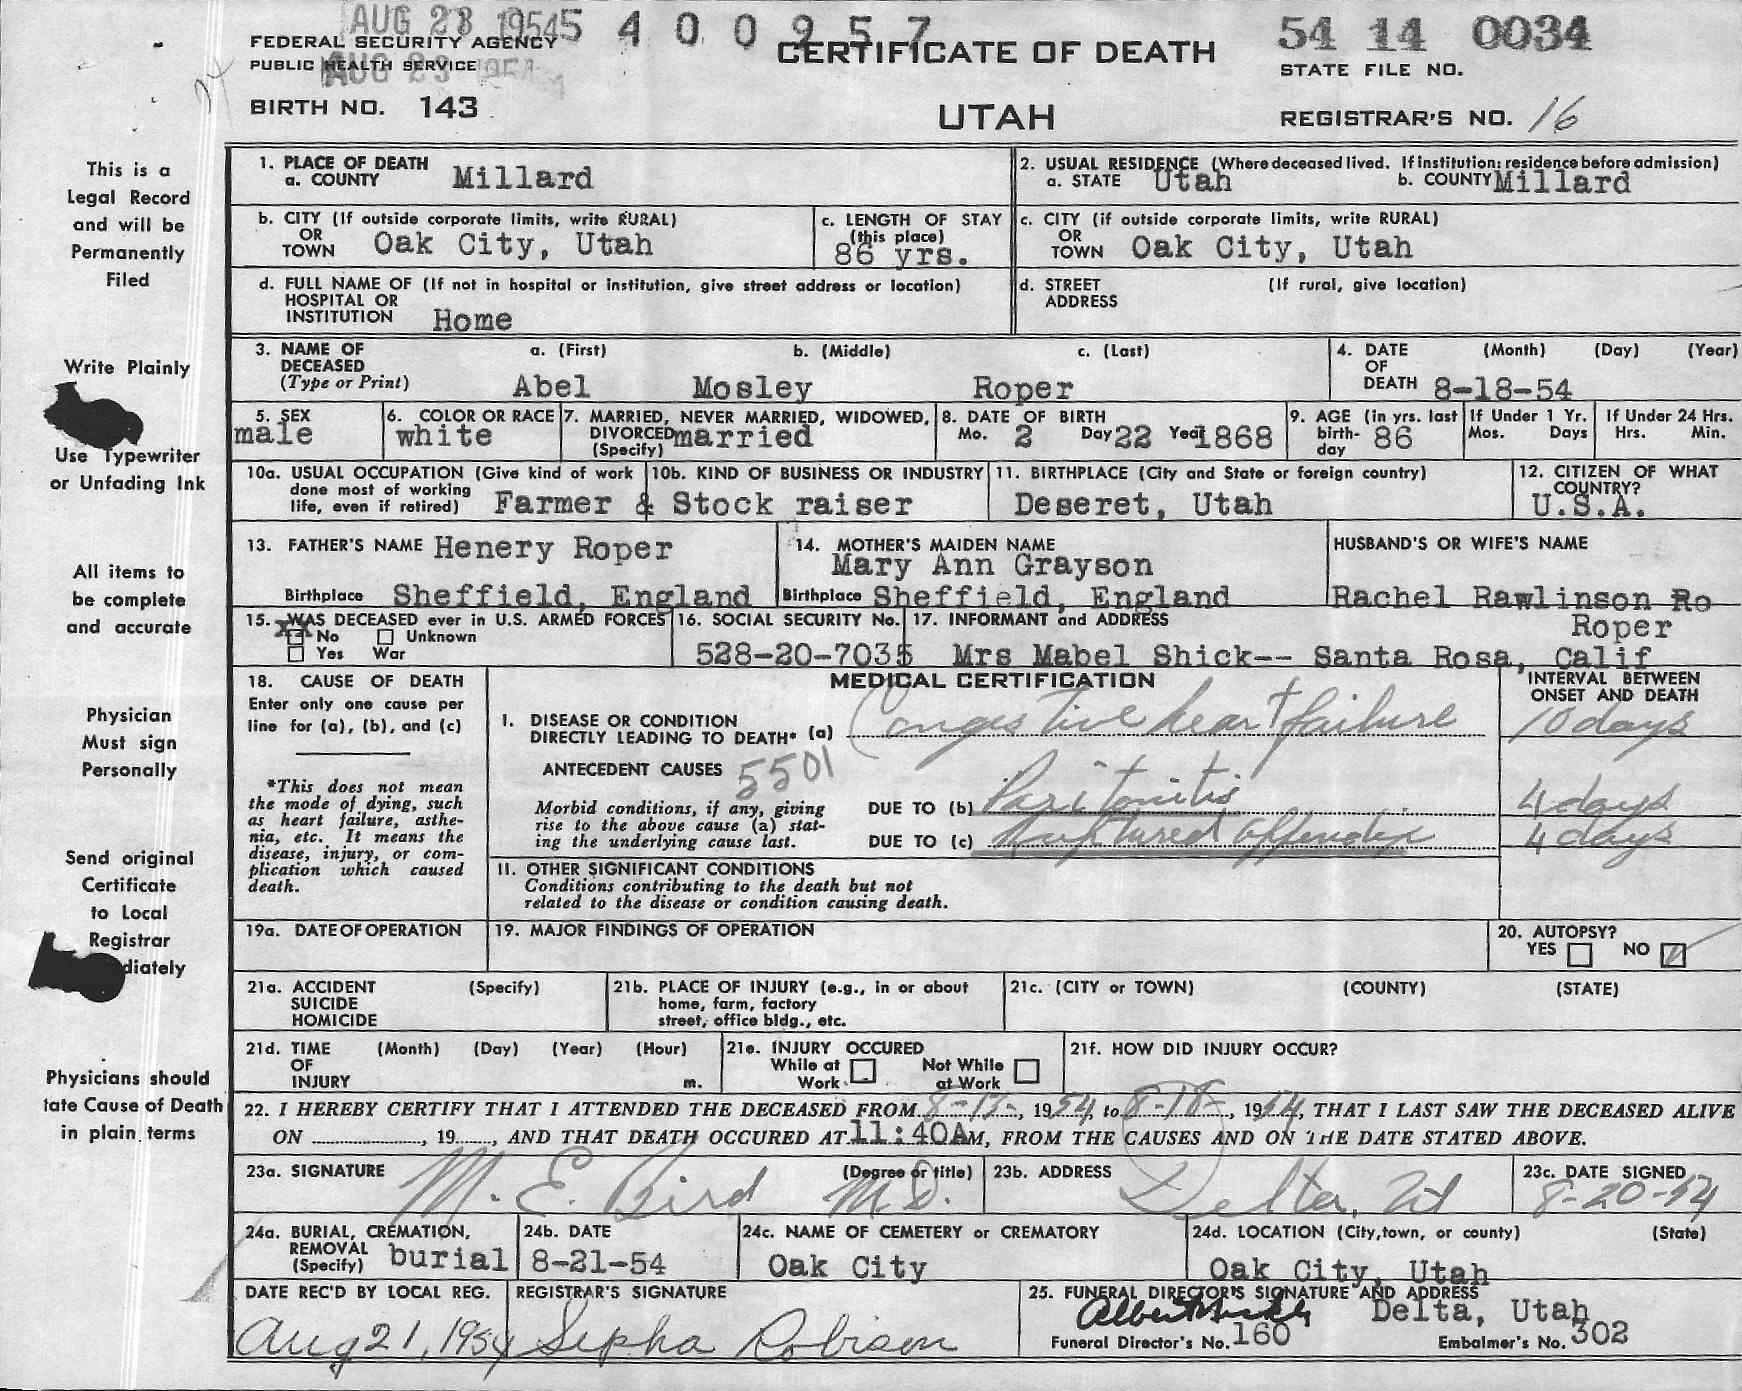 AUG 23 1954 5 4 0 0 9 5 7 54 14 0034
FEDERAL SECURITY AGENCY CERTIFICATE OF DEATH STATE FILE NO.
PUBLIC HEALTH SERVICE AUG 23 1954
BIRTH NO. 143 UTAH REGISTRAR'S NO. 16
This is a
Legal Record
and will be
Permanently
Filed
Write Plainly
Use Typewriter
or Unfading Ink
All items to
be complete
and accurate
Physician
Must sign
Personally
Send original
Certificate
to Local
Registrar
diately
Physicians should
tate Cause of Death
in plain terms
1. PLACE OF DEATH
a. COUNTY Millard
2. USUAL RESIDENCE (Where deceased lived. If institution: residence before admission)
a. STATE Utah b. COUNTY Millard
b. CITY (If outside corporate limits, write RURAL)
OR
TOWN Oak City, Utah
c. LENGTH OF STAY
(this place)
86 yrs.
c. CITY (if outside corporate limits, write RURAL)
OR
TOWN Oak City, Utah
d. FULL NAME OF (If not in hospital or institution, give street address or location)
HOSPITAL OR
INSTITUTION Home
d. STREET (If rural, give location)
ADDRESS
3. NAME OF a. (First) b. (Middle) c. (Last)
DECEASED
(Type or Print) Abel Mosley Roper
4. DATE (Month) (Day) (Year)
OF
DEATH 8-18-54
5. SEX
male
6. COLOR OR RACE
white
7. MARRIED, NEVER MARRIED, WIDOWED,
DIVORCED married
(Specify)
8. DATE OF BIRTH
Mo. 2 Day 22 Year 1868
9. AGE (in yrs. last
birth- 86
day
If Under 1 Yr.
Mos. Days
If Under 24 Hrs.
Hrs. Min.
10a. USUAL OCCUPATION (Give kind of work
done most of working
life, even if retired) Farmer &
10b. KIND OF BUSINESS OR INDUSTRY
Stock raiser
11. BIRTHPLACE (City and State or foreign country)
Deseret, Utah
12. CITIZEN OF WHAT
COUNTRY?
U.S.A.
13. FATHER'S NAME Henery Roper
Birthplace Sheffield, England
14. MOTHER'S MAIDEN NAME
Mary Ann Grayson
Birthplace Sheffield, England
HUSBAND'S OR WIFE'S NAME
Rachel Rawlinson Ro
Roper
15. WAS DECEASED ever in U.S. ARMED FORCES
XX No Unknown
Yes War
16. SOCIAL SECURITY No.
528-20-7035
17. INFORMANT and ADDRESS
Mrs Mabel Shick-- Santa Rosa, Calif
18. CAUSE OF DEATH
Enter only one cause per
line for (a), (b), and (c)
*This does not mean
the mode of dying, such
as heart failure, asthe-
nia, etc. It means the
disease, injury, or com-
plication which caused
death.
MEDICAL CERTIFICATION
INTERVAL BETWEEN
ONSET AND DEATH
I. DISEASE OR CONDITION
DIRECTLY LEADING TO DEATH* (a) Congestive heart failure 10 days
ANTECEDENT CAUSES 5501
Morbid conditions, if any, giving
rise to the above cause (a) stat-
ing the underlying cause last.
DUE TO (b) Paritonitis 4 days
DUE TO (c) Ruptured appendix 4 days
11. OTHER SIGNIFICANT CONDITIONS
Conditions contributing to the death but not
related to the disease or condition causing death.
19a. DATE OF OPERATION
19. MAJOR FINDINGS OF OPERATION
20. AUTOPSY?
YES NO
21a. ACCIDENT (Specify)
SUICIDE
HOMICIDE
21b. PLACE OF INJURY (e.g., in or about
home, farm, factory
street, office bldg., etc.
21c. (CITY or TOWN) (COUNTY) (STATE)
21d. TIME (Month) (Day) (Year) (Hour)
OF
INJURY m.
21e. INJURY OCCURED
While at Not While
Work at Work
21f. HOW DID INJURY OCCUR?
22. I HEREBY CERTIFY THAT I ATTENDED THE DECEASED FROM 1954 to 8-18-, 1954, THAT I LAST SAW THE DECEASED ALIVE
ON , 19 , AND THAT DEATH OCCURED AT 11:40AM, FROM THE CAUSES AND ON THE DATE STATED ABOVE.
23a. SIGNATURE (Degree or title)
M. E. Bird M.D.
23b. ADDRESS
Delta, Ut
23c. DATE SIGNED
8-20-54
24a. BURIAL, CREMATION,
REMOVAL
(Specify) burial
24b. DATE
8-21-54
24c. NAME OF CEMETERY or CREMATORY
Oak City
24d. LOCATION (City, town, or county) (State)
Oak City, Utah
DATE REC'D BY LOCAL REG.
Aug 21, 1954
REGISTRAR'S SIGNATURE
Sepha Robison
25. FUNERAL DIRECTOR'S SIGNATURE AND ADDRESS
Delta, Utah
Funeral Director's No. 160 Embalmer's No. 302